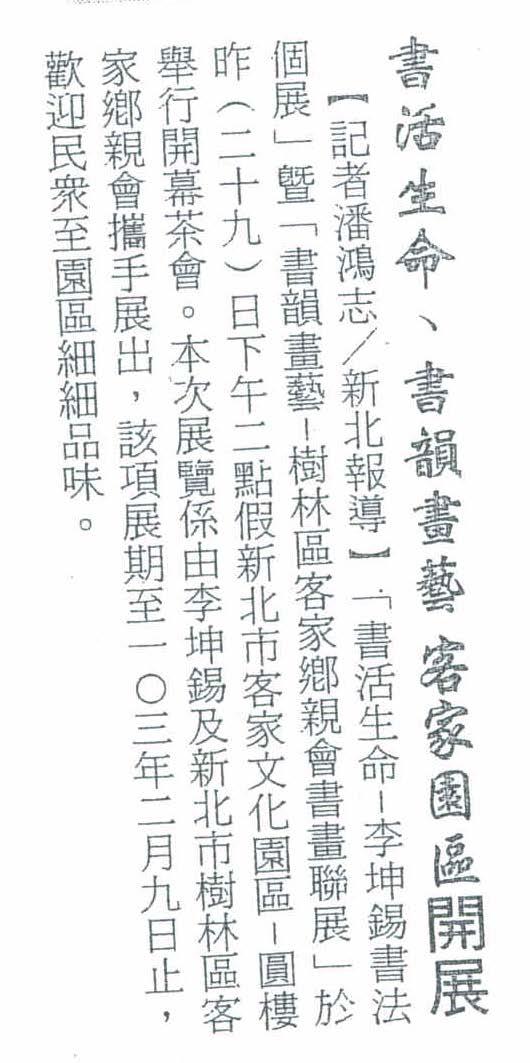 書活生命、書韻畫藝 客家園區開展
【記者潘鴻志／新北報導】「書活生命－李坤錫書法
個展」暨「書韻畫藝－樹林區客家鄉親會書畫聯展」於
昨（二十九）日下午二點假新北市客家文化園區－圓樓
舉行開幕茶會。本次展覽係由李坤錫及新北市樹林區客
家鄉親會攜手展出，該項展期至一○三年二月九日止，
歡迎民眾至園區細細品味。